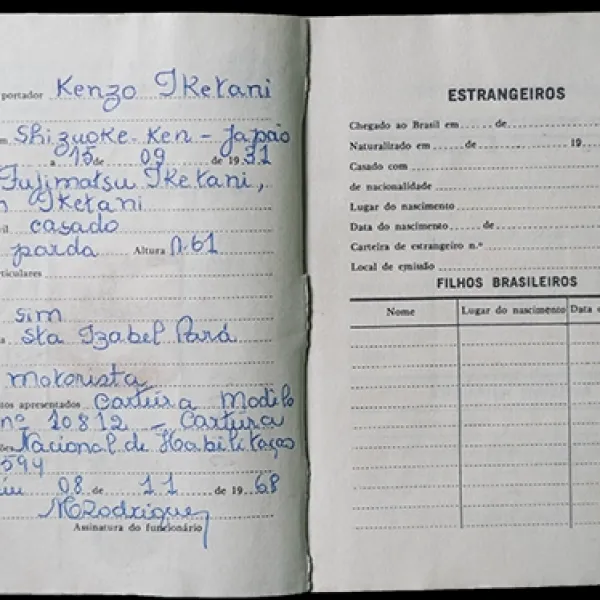 portador Kenzo Iketani
Shizuoke-Ken - Japão
a 15 de 09 de 1931
Fujimatsu Iketani,
Iketani
casado
parda Altura 1.61
ticulares
sim
Sta Izabel Pará
motorista
tos apresentados Carteira Modêlo
nº 10812 - Carteira
Nacional de Habilitaçao
594
08 de 11 de 1968
MRodrigues
Assinatura do funcionário
ESTRANGEIROS
Chegado ao Brasil em ...... de
Naturalizado em ...... de ...... 19
Casado com
de nacionalidade
Lugar do nascimento
Data do nascimento ...... de
Carteira de estrangeiro n.º
Local de emissão
FILHOS BRASILEIROS
Nome Lugar do nascimento Data